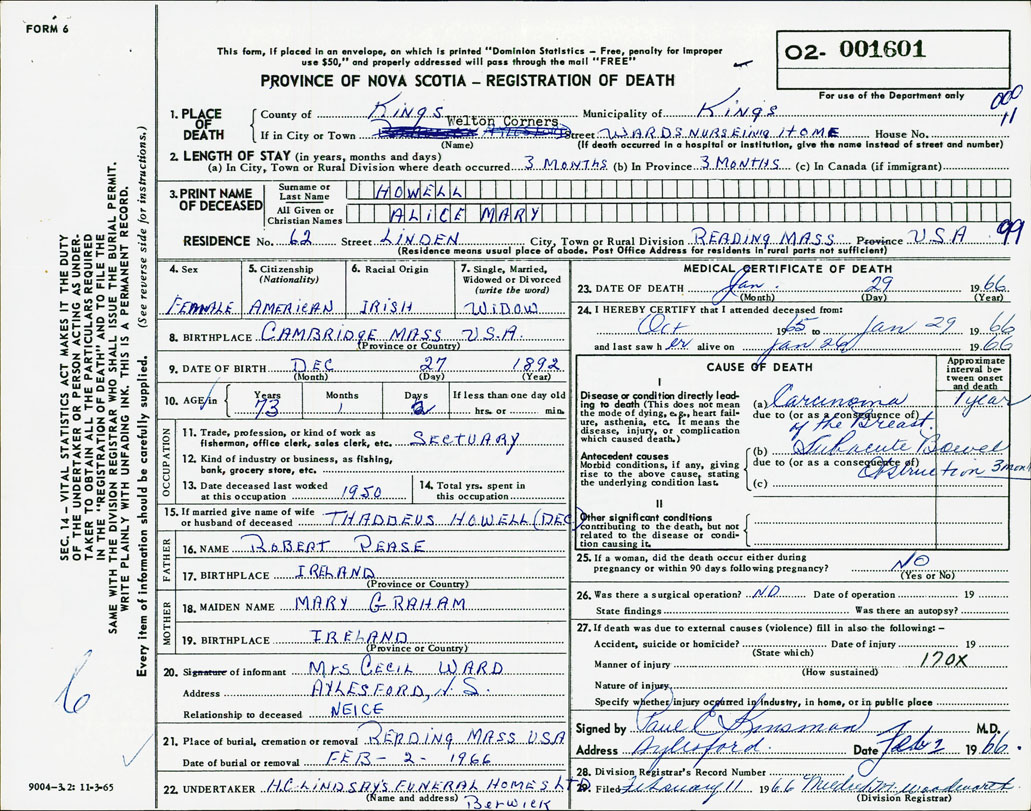 FORM 6
This form, if placed in an envelope, on which is printed "Dominion Statistics – Free, penalty for improper
use $50," and properly addressed will pass through the mail "FREE"
PROVINCE OF NOVA SCOTIA – REGISTRATION OF DEATH
O2- 001601
For use of the Department only
000
11
1. PLACE OF DEATH
County of KINGS Municipality of KINGS
Welton Corners
If in City or Town Street WARDS NURSEING HOME House No.
(Name) (If death occurred in a hospital or institution, give the name instead of street and number)
2. LENGTH OF STAY (in years, months and days)
(a) In City, Town or Rural Division where death occurred 3 MONTHS (b) In Province 3 MONTHS (c) In Canada (if immigrant)
3. PRINT NAME OF DECEASED
Surname or Last Name HOWELL
All Given or Christian Names ALICE MARY
RESIDENCE No. 62 Street LINDEN City, Town or Rural Division READING MASS Province U.S.A 99
(Residence means usual place of abode. Post Office Address for residents in rural parts not sufficient)
4. Sex FEMALE
5. Citizenship (Nationality) AMERICAN
6. Racial Origin IRISH
7. Single, Married, Widowed or Divorced (write the word) WIDOW
8. BIRTHPLACE CAMBRIDGE MASS U.S.A.
(Province or Country)
9. DATE OF BIRTH DEC 27 1892
(Month) (Day) (Year)
10. AGE in Years 73 Months 1 Days 2 If less than one day old
hrs. or min.
OCCUPATION
11. Trade, profession, or kind of work as
fishermon, office clerk, sales clerk, etc. SECTUARY
12. Kind of industry or business, as fishing,
bank, grocery store, etc.
13. Date deceased last worked
at this occupation 1950
14. Total yrs. spent in
this occupation
15. If married give name of wife
or husband of deceased THADDEUS HOWELL (DEC)
FATHER
16. NAME ROBERT PEASE
17. BIRTHPLACE IRELAND
(Province or Country)
MOTHER
18. MAIDEN NAME MARY GRAHAM
19. BIRTHPLACE IRELAND
(Province or Country)
20. Signature of informant MRS CECIL WARD
Address AYLESFORD, N.S.
Relationship to deceased NEICE
21. Place of burial, cremation or removal READING MASS USA
Date of burial or removal FEB - 2 - 1966
22. UNDERTAKER H.C. LINDSAY'S FUNERAL HOMES LTD
(Name and address) Berwick
MEDICAL CERTIFICATE OF DEATH
23. DATE OF DEATH Jan. 29 1966
(Month) (Day) (Year)
24. I HEREBY CERTIFY that I attended deceased from:
Oct 1965 to Jan 29 1966
and last saw her alive on Jan 26 1966
CAUSE OF DEATH
Approximate interval between onset and death
I
Disease or condition directly leading to death (This does not mean the mode of dying, e.g., heart failure, asthenia, etc. It means the disease, injury, or complication which caused death.)
(a) Carcinoma 1 year
due to (or as a consequence of)
of the Breast.
Antecedent causes
Morbid conditions, if any, giving rise to the above cause, stating the underlying condition last.
(b) Subacute Bowel
due to (or as a consequence of)
Obstruction 3 mon
(c)
II
Other significant conditions
contributing to the death, but not related to the disease or condition causing it.
25. If a woman, did the death occur either during
pregnancy or within 90 days following pregnancy? NO
(Yes or No)
26. Was there a surgical operation? NO Date of operation 19
State findings Was there an autopsy?
27. If death was due to external causes (violence) fill in also the following: –
Accident, suicide or homicide? Date of injury 19
(State which)
Manner of injury 170X
(How sustained)
Nature of injury
Specify whether injury occurred in industry, in home, or in public place
Signed by Paul C Kinsman M.D.
Address Aylesford. Date Feb 2 1966.
28. Division Registrar's Record Number
29. Filed February 11 1966
(Division Registrar)
SEC. 14 – VITAL STATISTICS ACT MAKES IT THE DUTY
OF THE UNDERTAKER OR PERSON ACTING AS UNDER-
TAKER TO OBTAIN ALL THE PARTICULARS REQUIRED
IN THE "REGISTRATION OF DEATH" AND TO FILE THE
SAME WITH THE DIVISION REGISTRAR WHO SHALL ISSUE THE BURIAL PERMIT.
WRITE PLAINLY WITH UNFADING INK. THIS IS A PERMANENT RECORD.
Every item of information should be carefully supplied. (See reverse side for instructions.)
6
9004-3.2: 11-3-65